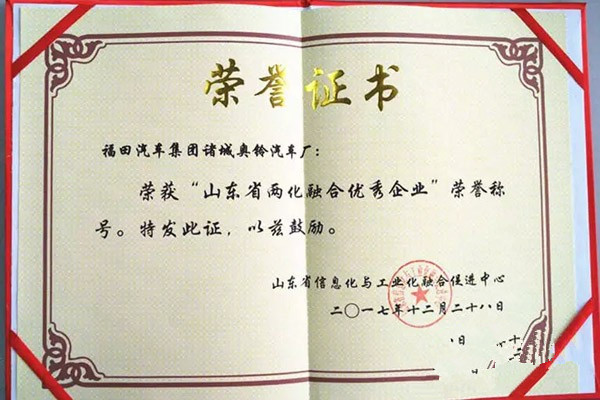 荣誉证书
福田汽车集团诸城奥铃汽车厂：
荣获“山东省两化融合优秀企业”荣誉称
号。特发此证，以兹鼓励。
山东省信息化与工业化融合促进中心
二〇一七年十二月二十八日
日
十
二
日